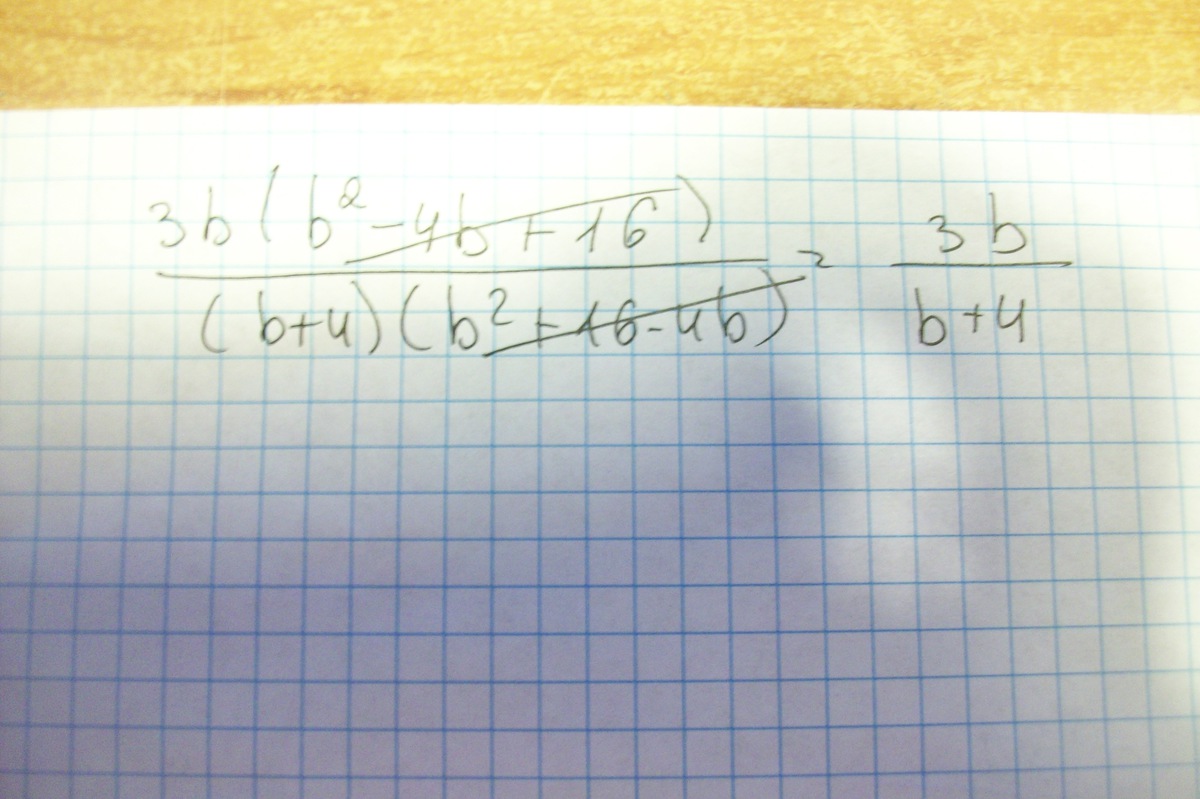 3b(b² - 4b + 16) / (b+4)(b² + 16 - 4b) = 3b / b+4